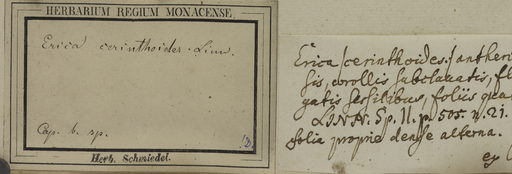 HERBARIUM REGIUM MONACENSE.
Erica cerinthoides. Linn.
Cap. b. sp.
Herb. Schmiedel.
Erica (cerinthoides.) antheri
sis, corollis subclavatis, fl
gatis sessilibus, foliis qua
LINN. Sp. II. p. 505. n. 21.
folia proprie dense alterna.